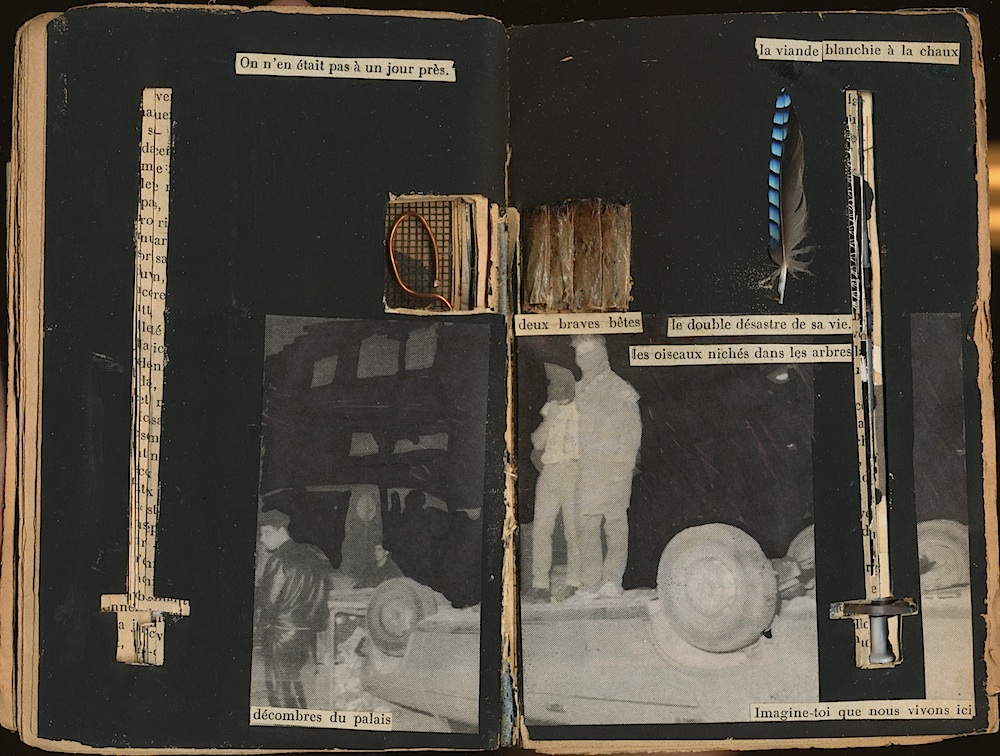 On n'en était pas à un jour près.
décombres du palais
la viande blanchie à la chaux
deux braves bêtes
le double désastre de sa vie.
les oiseaux nichés dans les arbres
Imagine-toi que nous vivons ici